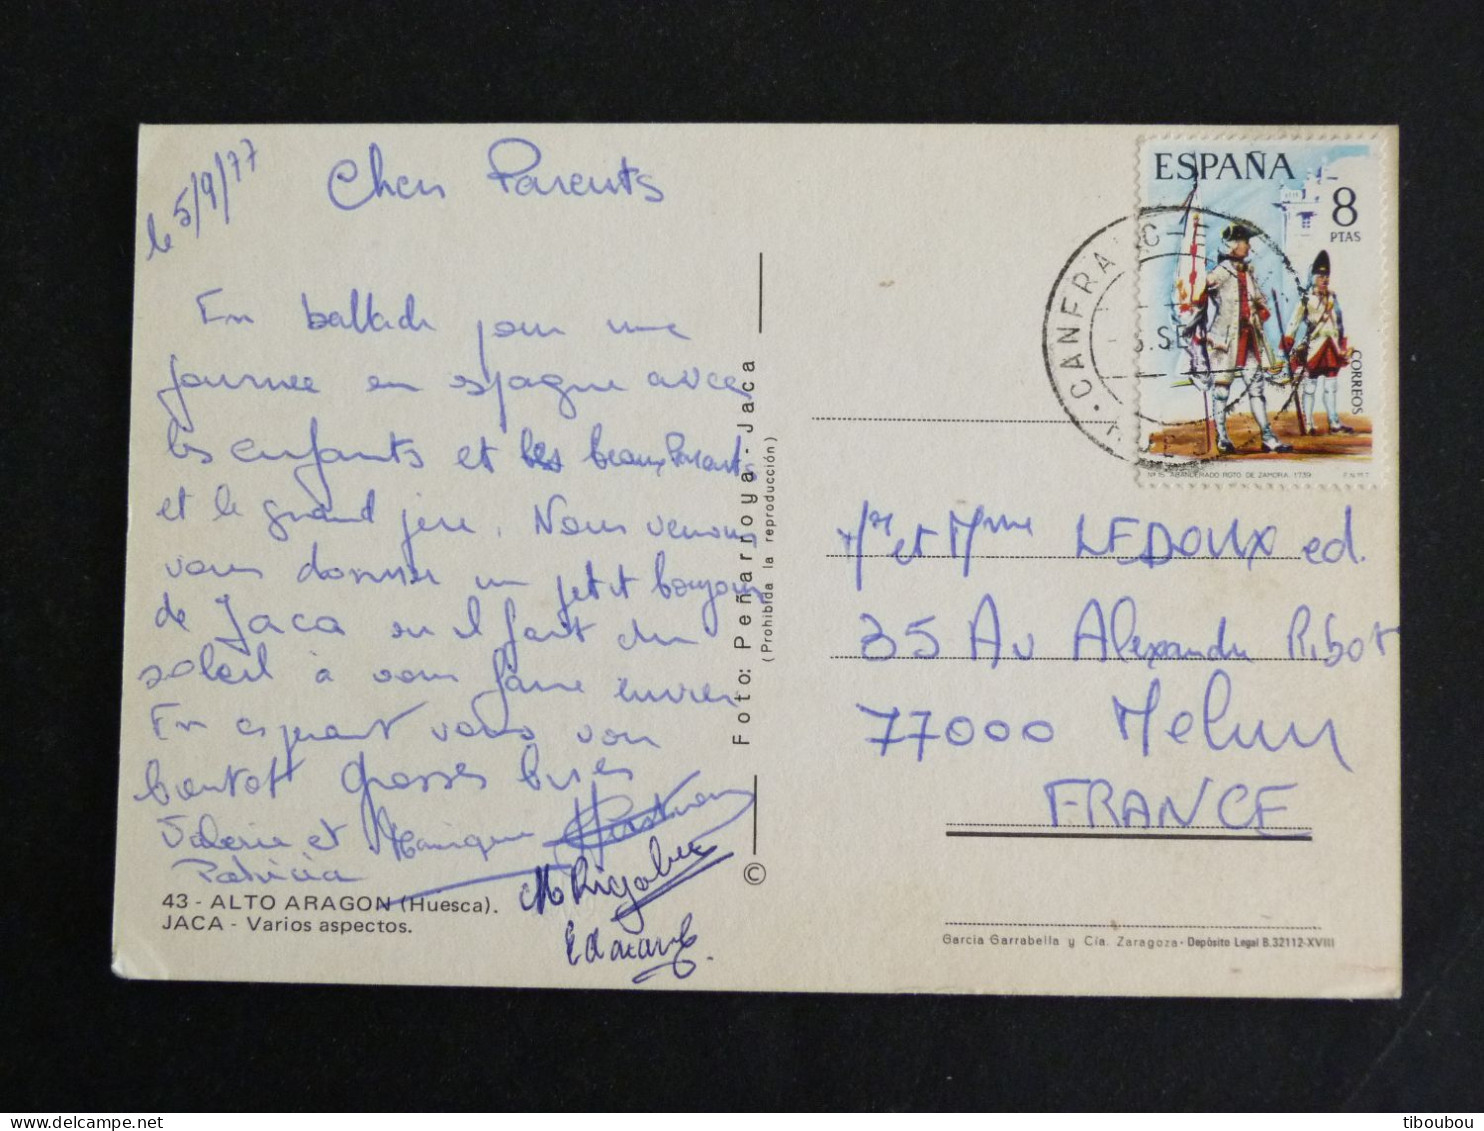 le 5/9/77
Chers Parents
En ballade pour une
journée en espagne avec
les enfants et les beaux Parents
et le grand père. Nous venons
vous donner un petit bonjour
de Jaca ou il fait du
soleil à vous faire envier
En esperant vous voir
bientot Grosses bises
Valerie et Monique
Patricia
M Rigolue
Edouard
43 - ALTO ARAGON (Huesca).
JACA - Varios aspectos.
Foto: Peñarroya - Jaca
(Prohibida la reproducción)
©
ESPAÑA
8
PTAS
CORREOS
Nº 15 ABANDERADO RGTO DE ZAMORA 1739 F.N.M.T.
CANFRANC-E
SE
HUES
Mr et Mme LEDOUX ed.
35 Av Alexandre Ribot
77000 Melun
FRANCE
Garcia Garrabella y Cía. Zaragoza - Depósito Legal B.32112-XVIII
tiboubou